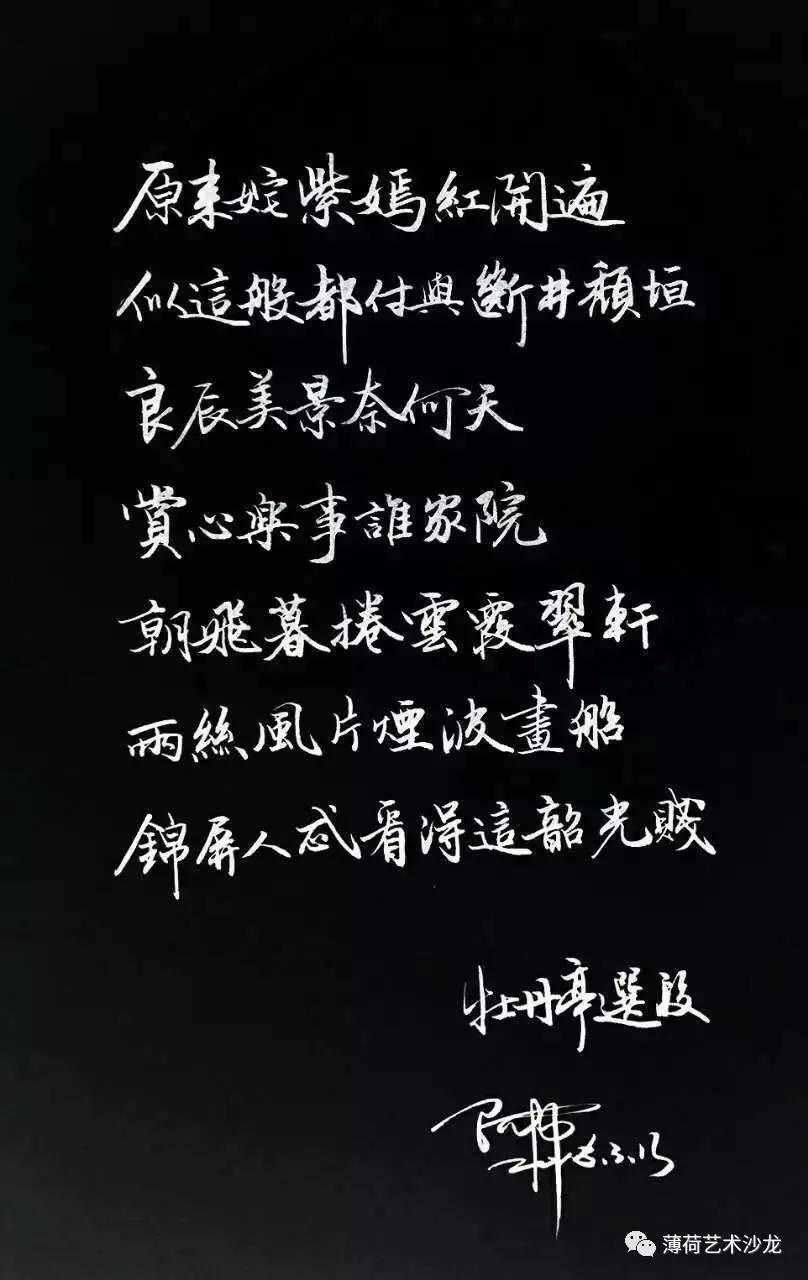 原来姹紫嫣紅開遍
似這般都付與斷井頹垣
良辰美景奈何天
賞心樂事誰家院
朝飛暮捲雲霞翠軒
雨絲風片煙波畫船
錦屏人忒看得這韶光賤
牡丹亭選段
薄荷艺术沙龙